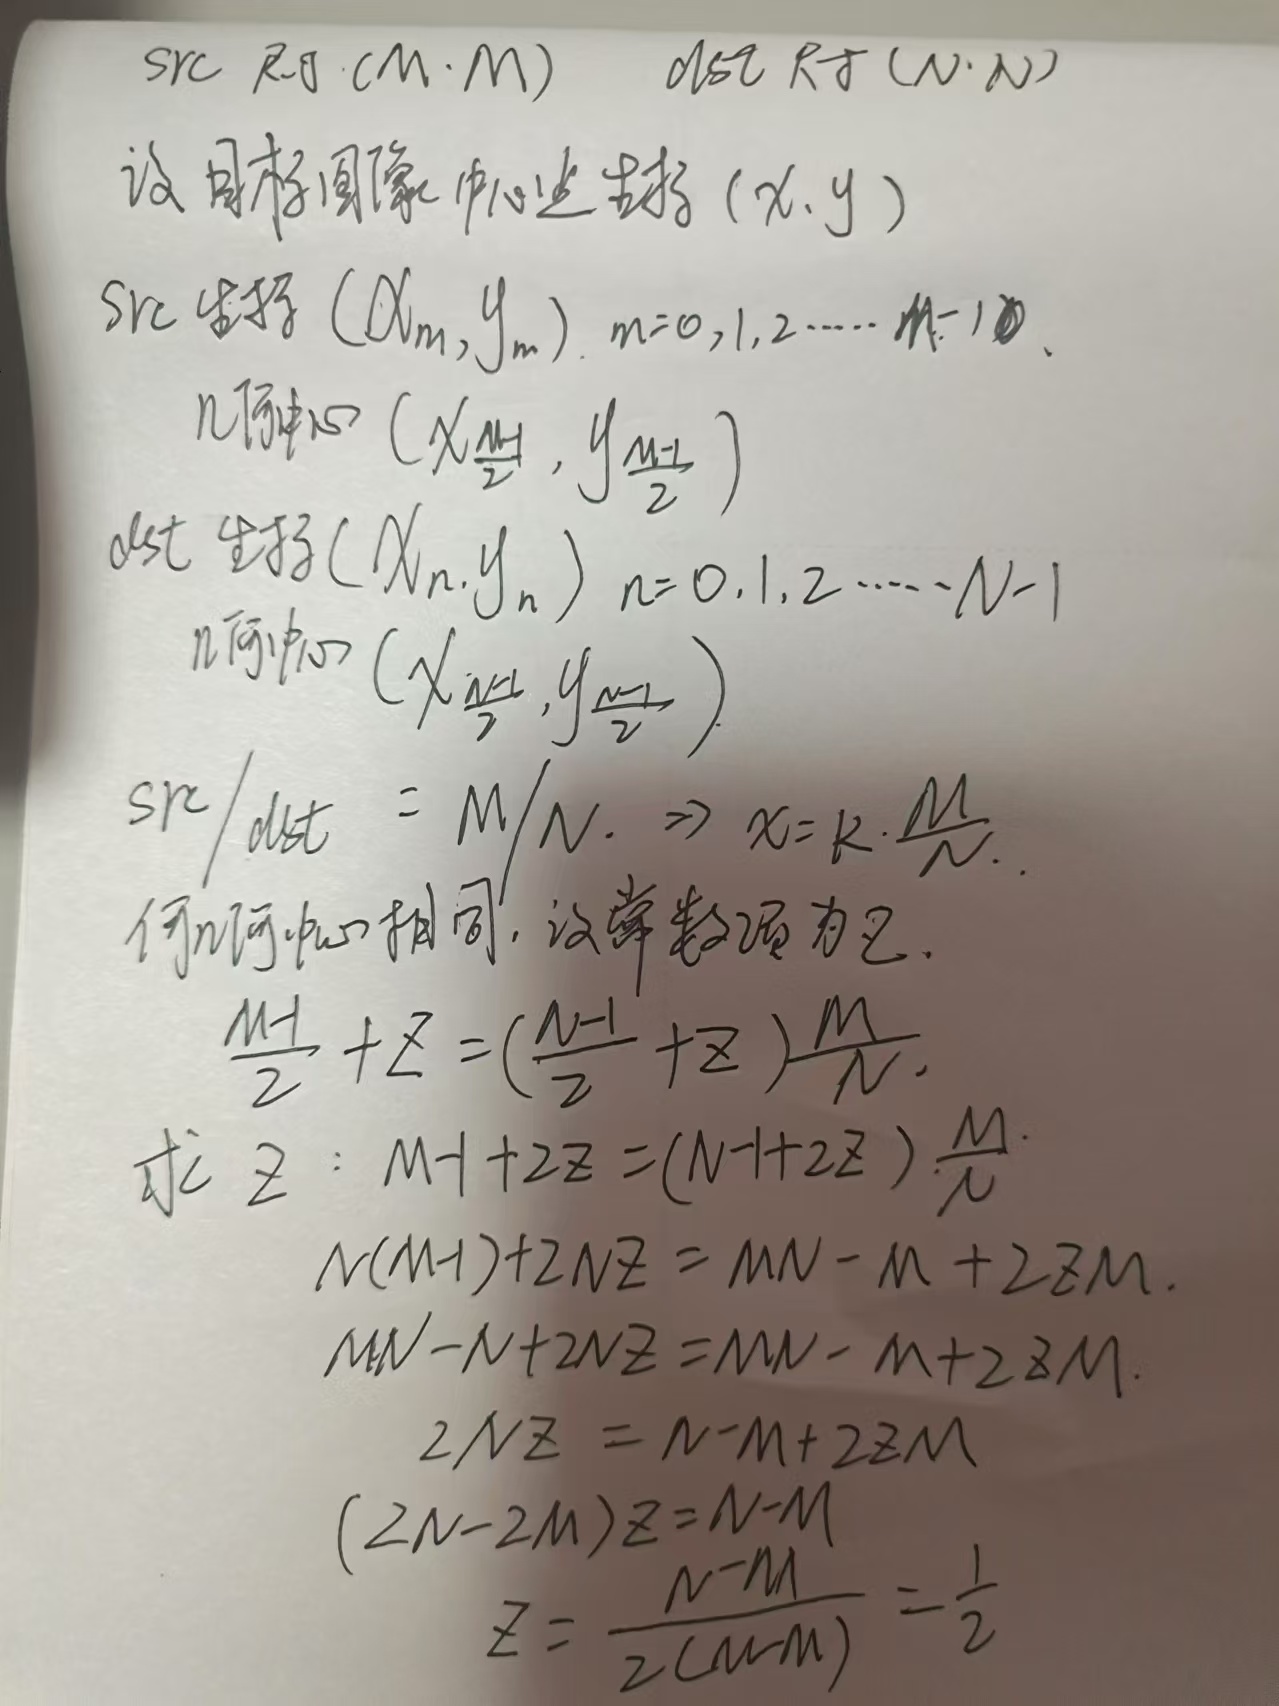 src 尺寸(M·M) dst 尺寸(N·N)
设目标图像中心点坐标(x.y)
src 坐标(x_m, y_m). m=0,1,2……M-1
几何中心(x_{\frac{M-1}{2}}, y_{\frac{M-1}{2}})
dst 坐标(x_n.y_n) n=0.1.2……N-1
几何中心(x_{\frac{N-1}{2}}, y_{\frac{N-1}{2}})
src/dst = M/N. ⇒ x=k·\frac{M}{N}.
使几何中心相同.设常数项为Z.
\frac{M-1}{2}+Z=(\frac{N-1}{2}+Z)\frac{M}{N}.
求 Z: M-1+2Z=(N-1+2Z)·\frac{M}{N}
N(M-1)+2NZ=MN-M+2ZM.
MN-N+2NZ=MN-M+2ZM.
2NZ=N-M+2ZM
(2N-2M)Z=N-M
Z=\frac{N-M}{2(N-M)}=\frac{1}{2}